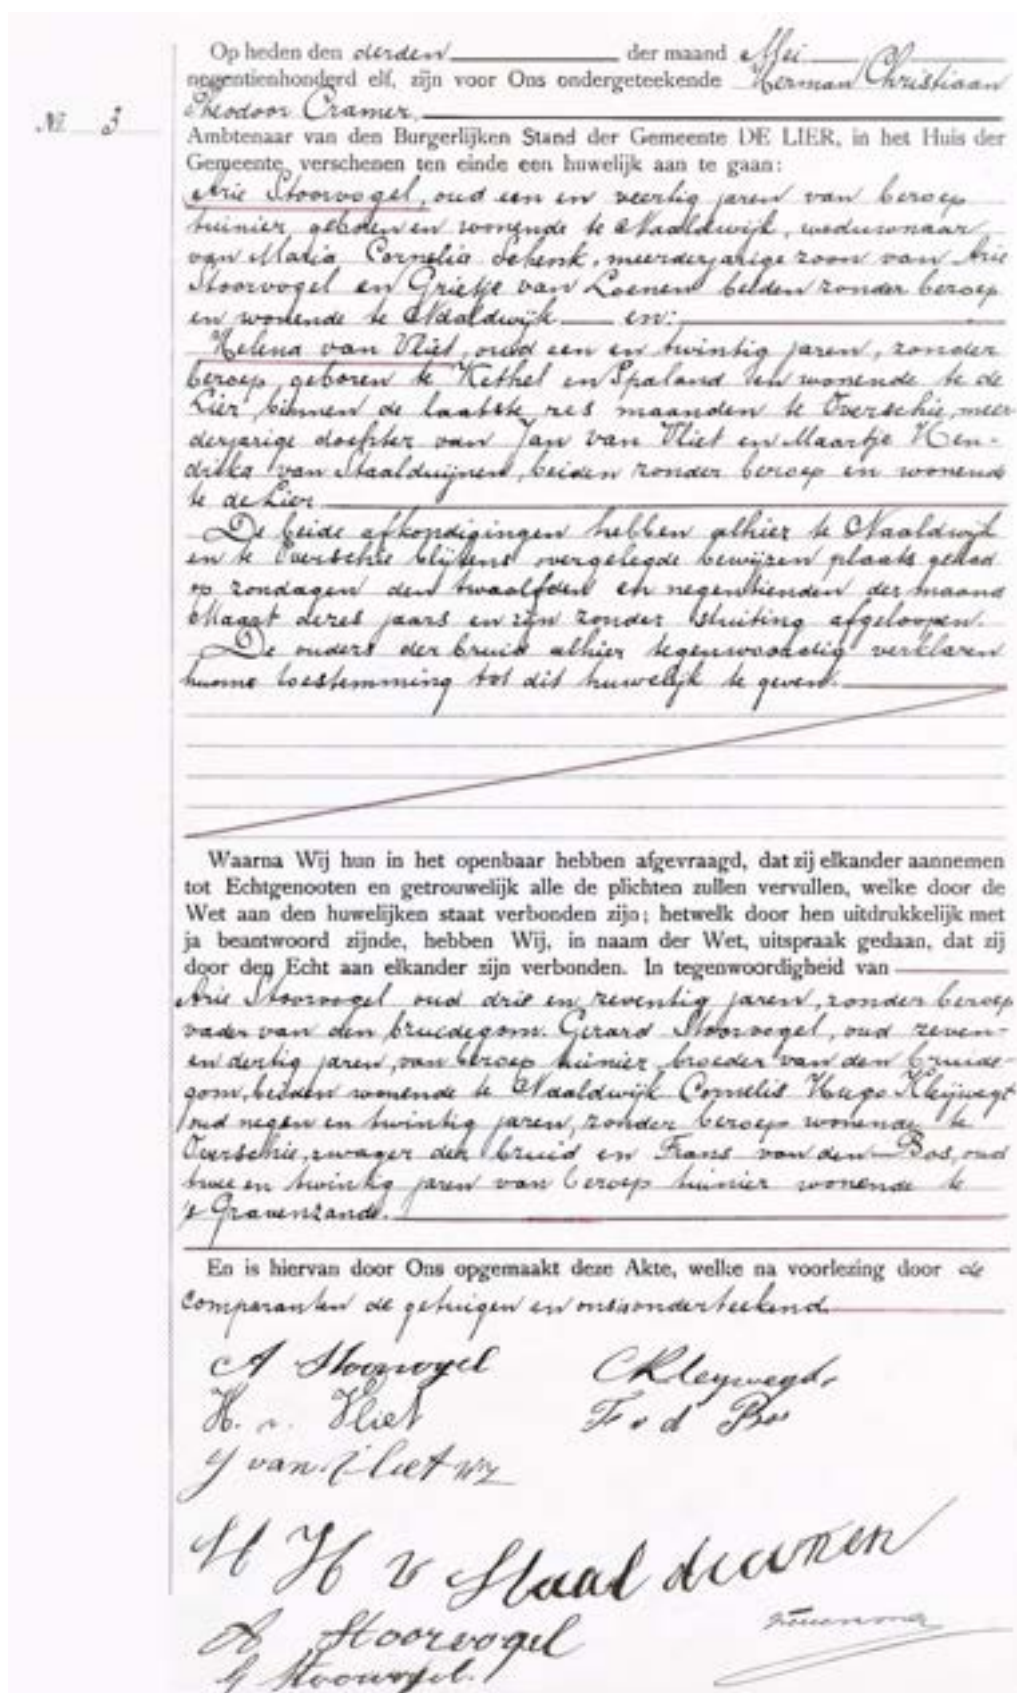 Op heden den derden der maand Mei
negentienhonderd elf, zijn voor Ons ondergeteekende Herman Christiaan
Nº 3
Theodoor Cramer,
Ambtenaar van den Burgerlijken Stand der Gemeente DE LIER, in het Huis der
Gemeente, verschenen ten einde een huwelijk aan te gaan:
Arie Stoorvogel, oud een en veertig jaren van beroep
tuinier, geboren en wonende te Naaldwijk, weduwnaar
van Maria Cornelia Schenk, meerderjarige zoon van Arie
Stoorvogel en Grietje van Loenen beiden zonder beroep
en wonende te Naaldwijk en:
Helena van Vliet, oud een en twintig jaren, zonder
beroep, geboren te Kethel en Spaland en wonende te de
Lier, binnen de laatste zes maanden te Overschie, meer
derjarige dochter van Jan van Vliet en Maartje Hen-
drika van Staalduijnen, beiden zonder beroep en wonende
te de Lier
De beide afkondigingen hebben alhier te Naaldwijk
en te Overschie blijkens overgelegde bewijzen plaats gehad
op zondagen den twaalfden en negentienden der maand
Maart dezes jaars en zijn zonder stuiting afgeloopen.
De ouders der bruid alhier tegenwoordig verklaren
hunne toestemming tot dit huwelijk te geven.
Waarna Wij hun in het openbaar hebben afgevraagd, dat zij elkander aannemen
tot Echtgenooten en getrouwelijk alle de plichten zullen vervullen, welke door de
Wet aan den huwelijken staat verbonden zijn; hetwelk door hen uitdrukkelijk met
ja beantwoord zijnde, hebben Wij, in naam der Wet, uitspraak gedaan, dat zij
door den Echt aan elkander zijn verbonden. In tegenwoordigheid van
Arie Stoorvogel oud drie en zeventig jaren, zonder beroep
vader van den bruidegom. Gerard Stoorvogel, oud zeven-
en dertig jaren, van beroep tuinier, broeder van den bruide-
gom, beiden wonende te Naaldwijk Cornelis Hugo Kleijwegt
oud negen en twintig jaren, zonder beroep wonende te
Overschie, zwager der bruid en Frans van den Bos, oud
twee en twintig jaren van beroep tuinier wonende te
's Gravenzande.
En is hiervan door Ons opgemaakt deze Akte, welke na voorlezing door de
comparanten de getuigen en ons is onderteekend.
A Stoorvogel CKleywegt
H. v. Vliet F v d Bos
J van Vliet Wz
M H v Staalduinen
A Stoorvogel
G Stoorvogel.